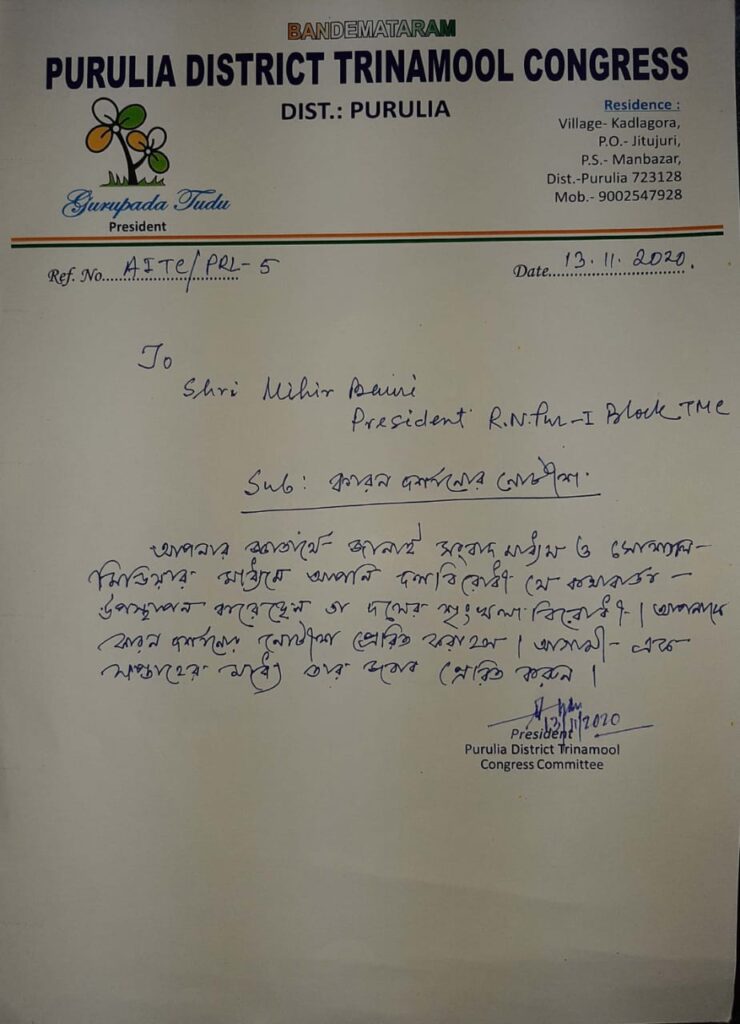 BANDEMATARAM
PURULIA DISTRICT TRINAMOOL CONGRESS
DIST.: PURULIA
Residence :
Village- Kadlagora,
P.O.- Jitujuri,
P.S.- Manbazar,
Dist.-Purulia 723128
Mob.- 9002547928
Gurupada Tudu
President
Ref. No. AITC/PRL-5
Date. 13.11.2020.
To
Shri Mihir Bauri
President R.N.Pur-I Block TMC
Sub: কারন দর্শানোর নোটীশ.
আপনার জ্ঞাতার্থে জানাই সংবাদ মাধ্যম ও সোশ্যাল-
মিডিয়ার মাধ্যমে আপনি দলবিরোধী যে কথাবার্তা -
উপস্থাপন করেছেন তা দলের শৃংখলা বিরোধী। আপনাকে
কারন দর্শানোর নোটীশ প্রেরিত করা হল। আগামী- এক
সপ্তাহের মধ্যে তার জবাব প্রেরিত করুন।
13/11/2020
President
Purulia District Trinamool
Congress Committee